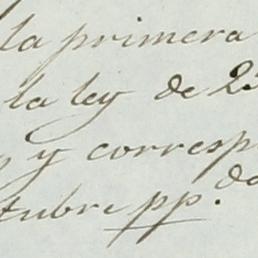 la primera
la ley de 23
y corresp
tubre pp. do